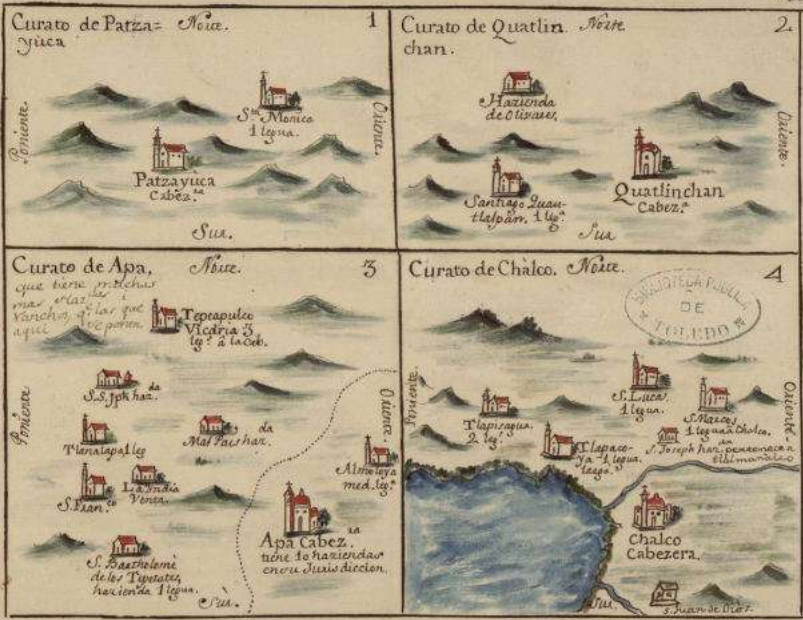 Curato de Patza=
yuca
Norte.
1
Poniente.
Oriente.
Sta. Monica
1 legua.
Patzayuca
Cabez.ra
Sur.
Curato de Quatlin
chan.
Norte
2
Oriente.
Hazienda
de Olivares,
Santiago Quau-
tlalpan. 1 leg.a
Quatlinchan
Cabez.a
Sur
Curato de Apa,
Norte.
3
que tiene muchas
mas Haz.das i
Ranchos, q. las que
aqui se ponen
Tepeapulco
Vicaria 3
leg.s à la Cab.
Poniente
Oriente.
S.S. Jph haz.da
Tlanalapa 1 leg
Mal Pais haz.da
S. Fran.co
La Yndia
Venta.
Almoloya
med. leg.a
Apa Cabez.ra
tiene 10 haziendas
en su Jurisdiccion.
S. Bartholomè
de los Tepetates,
hazienda 1 legua.
Sur.
Curato de Chalco.
Norte.
4
BIBLIOTECA PUBLICA
DE
TOLEDO
Poniente.
Oriente.
S. Lucas.
1 legua.
S. Marcos
1 legua a Chalco.
Tlapisagua.
2 leg.s
Tlapaco-
Ya 1 legua.
S. Joseph haz.da pertenece a
Chalco
Cabezera.
Sur
S. Juan de Dios.